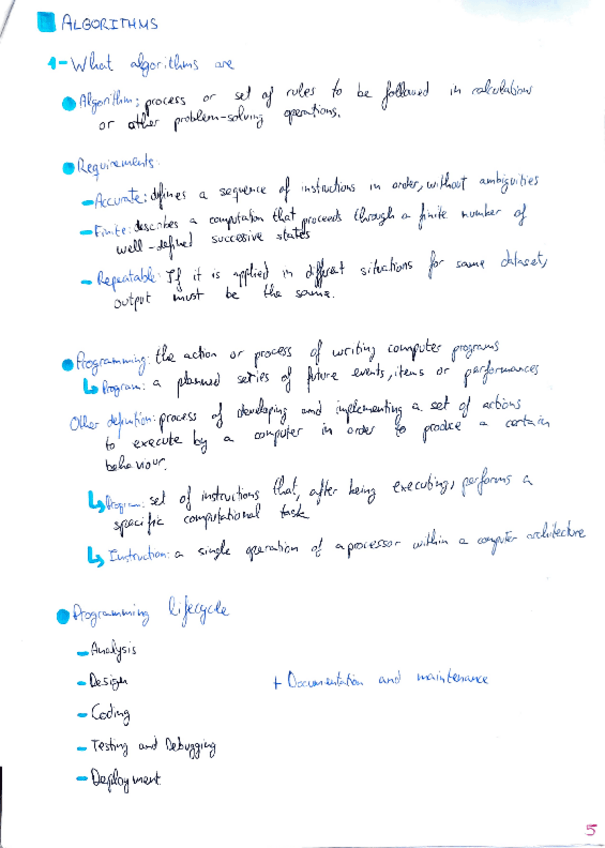 ALGORITHMS
1- What algorithms are
Algorithm: process or set of rules to be followed in calculations
or other problem-solving operations.
Requirements:
- Accurate: defines a sequence of instructions in order, without ambiguities
- Finite: describes a computation that proceeds through a finite number of
well-defined succesive states
- Repeatable: If it is applied in diffreat situations for same dataset,
output must be the same.
Programming: the action or process of writing computer programs
↳ Program: a planned series of future events, items or performances
Other definition: process of developing and implementing a set of actions
to execute by a computer in order to produce a certain
behaviour.
↳ Program: set of instructions that, after being executing, performs a
specific computational task
↳ Instruction: a single operation of a processor within a computer architecture
Programming lifecycle
- Analysis
- Design + Documentation and maintenance
- Coding
- Testing and Debugging
- Deployment
5